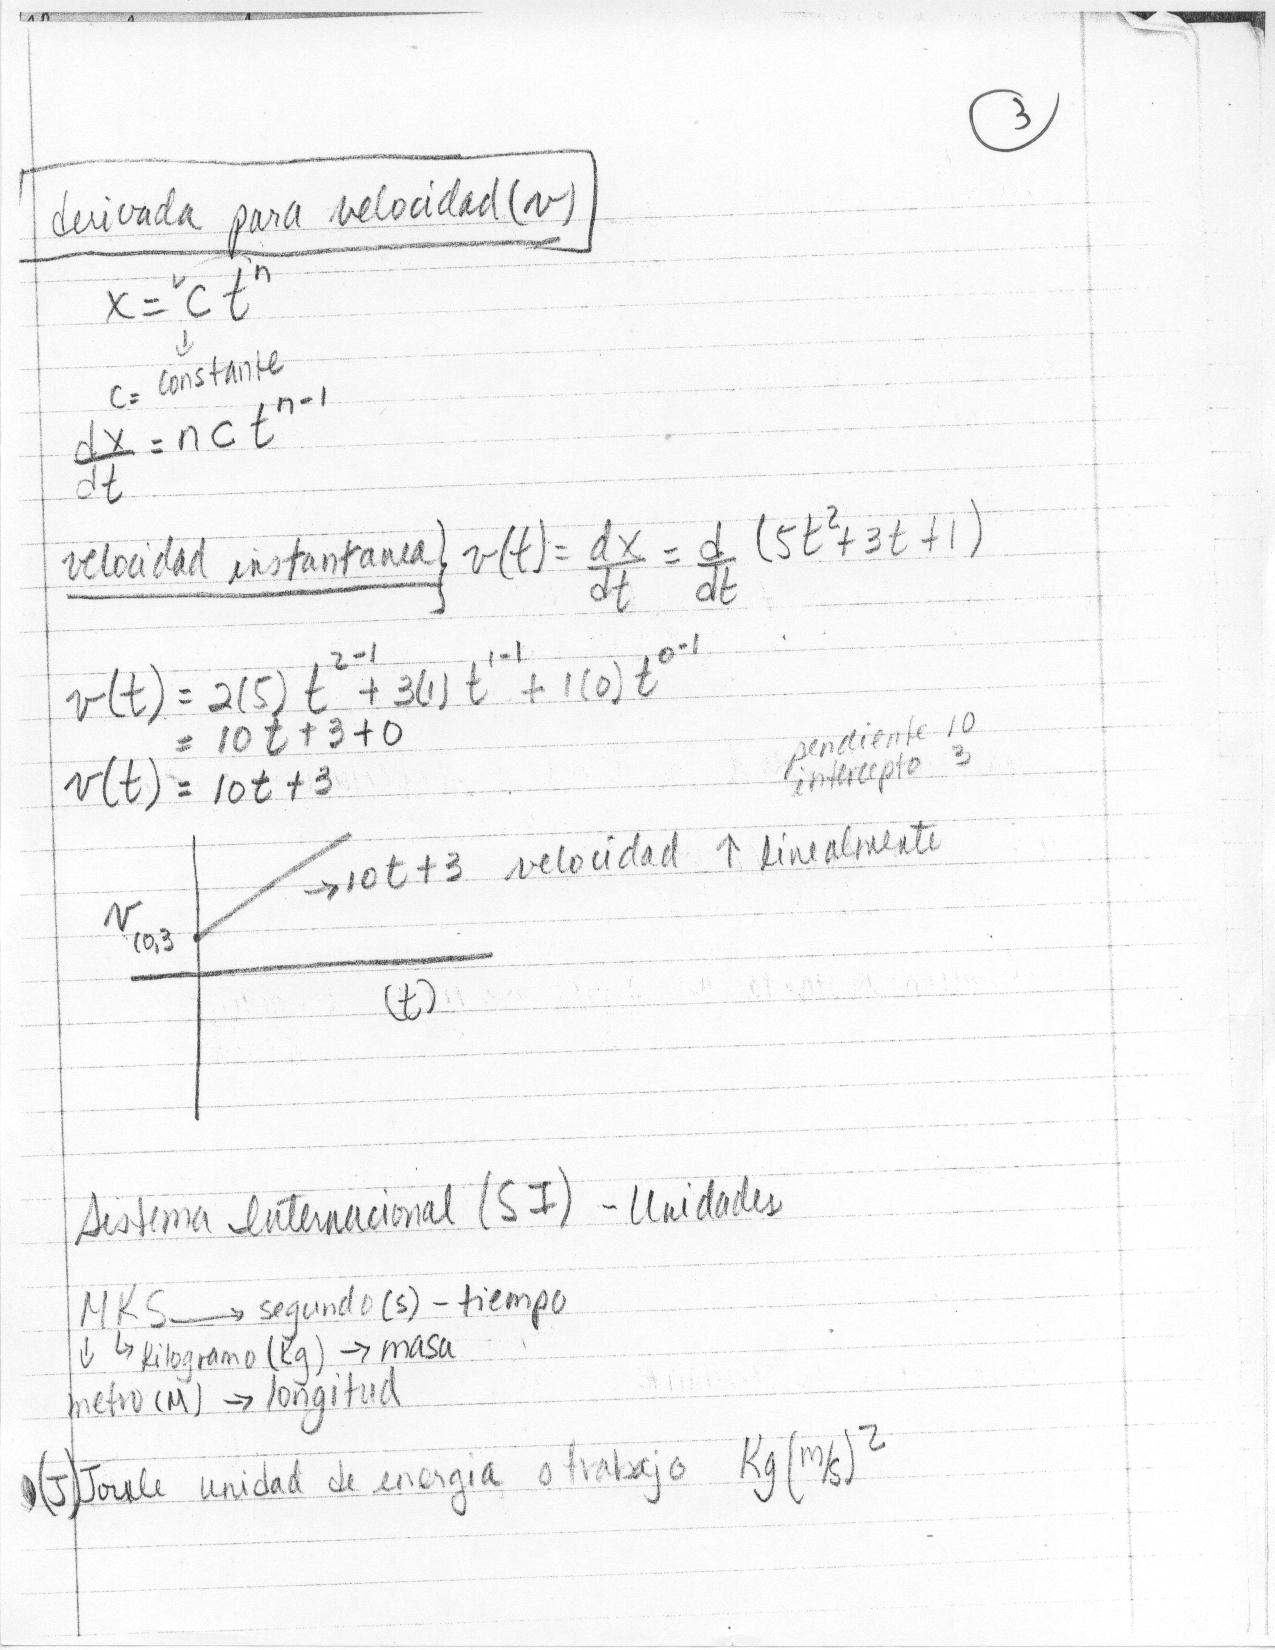 3
derivada para velocidad (v)
x = c tⁿ
↓
c = constante
dx/dt = n c tⁿ⁻¹
velocidad instantanea} v(t) = dx/dt = d/dt (5t² + 3t + 1)
v(t) = 2(5) t²⁻¹ + 3(1) t¹⁻¹ + 1(0) t⁰⁻¹
= 10t + 3 + 0
pendiente 10
v(t) = 10t + 3
intercepto 3
→ 10t + 3 velocidad ↑ linealmente
v
(0,3
(t)
Sistema Internacional (SI) - Unidades
MKS → segundo (s) - tiempo
↓ ↳ kilogramo (kg) → masa
metro (M) → longitud
(J) Joule unidad de energia o trabajo Kg (m/s)²